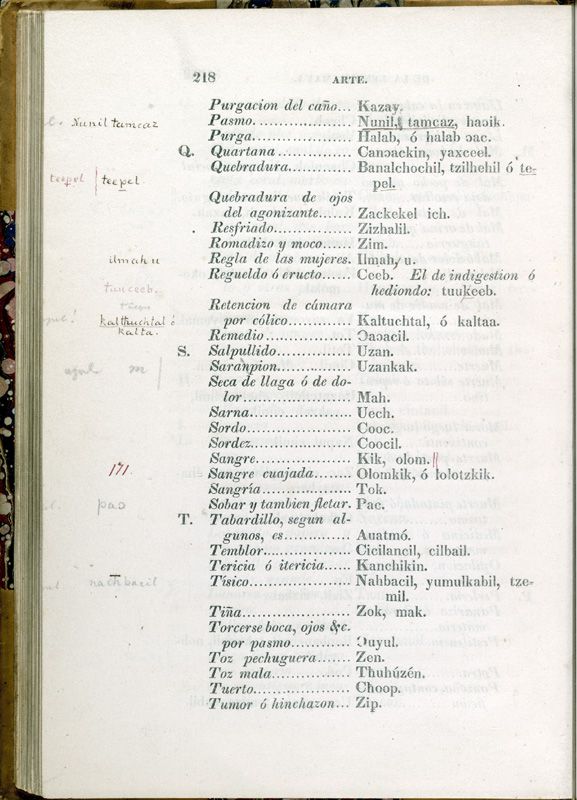 218 ARTE.
Purgacion del caño... Kazay.
Nunil tamcaz
Pasmo.................. Nunil, tamcaz, haɔik.
Purga.................. Halab, ó halab ɔac.
Q. Quartana.............. Canɔackin, yaxceel.
Quebradura............ Banalchochil, tzilhehil ó te-
teepel teepel
pel.
Quebradura de ojos
del agonizante....... Zackekel ich.
Resfriado.............. Zizhalil.
Romadizo y moco...... Zim.
ilmah u
Regla de las mujeres. Ilmah, u.
Regueldo ó eructo...... Ceeb. El de indigestion ó
tauceeb.
hediondo: tuukeeb.
Retencion de cámara
kaltuuchtal ó
por cólico............ Kaltuchtal, ó kaltaa.
kalta.
Remedio............... Ɔaɔacil.
S. Salpullido............. Uzan.
Saranpion............. Uzankak.
Seca de llaga ó de do-
lor.................... Mah.
Sarna.................. Uech.
Sordo.................. Cooc.
Sordez................. Coocil.
Sangre................. Kik, olom.
171.
Sangre cuajada........ Olomkik, ó lolotzkik.
Sangría................ Tok.
Sobar y tambien fletar. Pac.
pao
T. Tabardillo, segun al-
gunos, es............. Auatmó.
Temblor................ Cicilancil, cilbail.
Tericia ó itericia...... Kanchikin.
Tísico.................. Nahbacil, yumulkabil, tze-
nachbacil
mil.
Tiña................... Zok, mak.
Torcerse boca, ojos &c.
por pasmo............ Ɔuyul.
Toz pechuguera....... Zen.
Toz mala.............. Thuhúzén.
Tuerto................. Choop.
Tumor ó hinchazon... Zip.